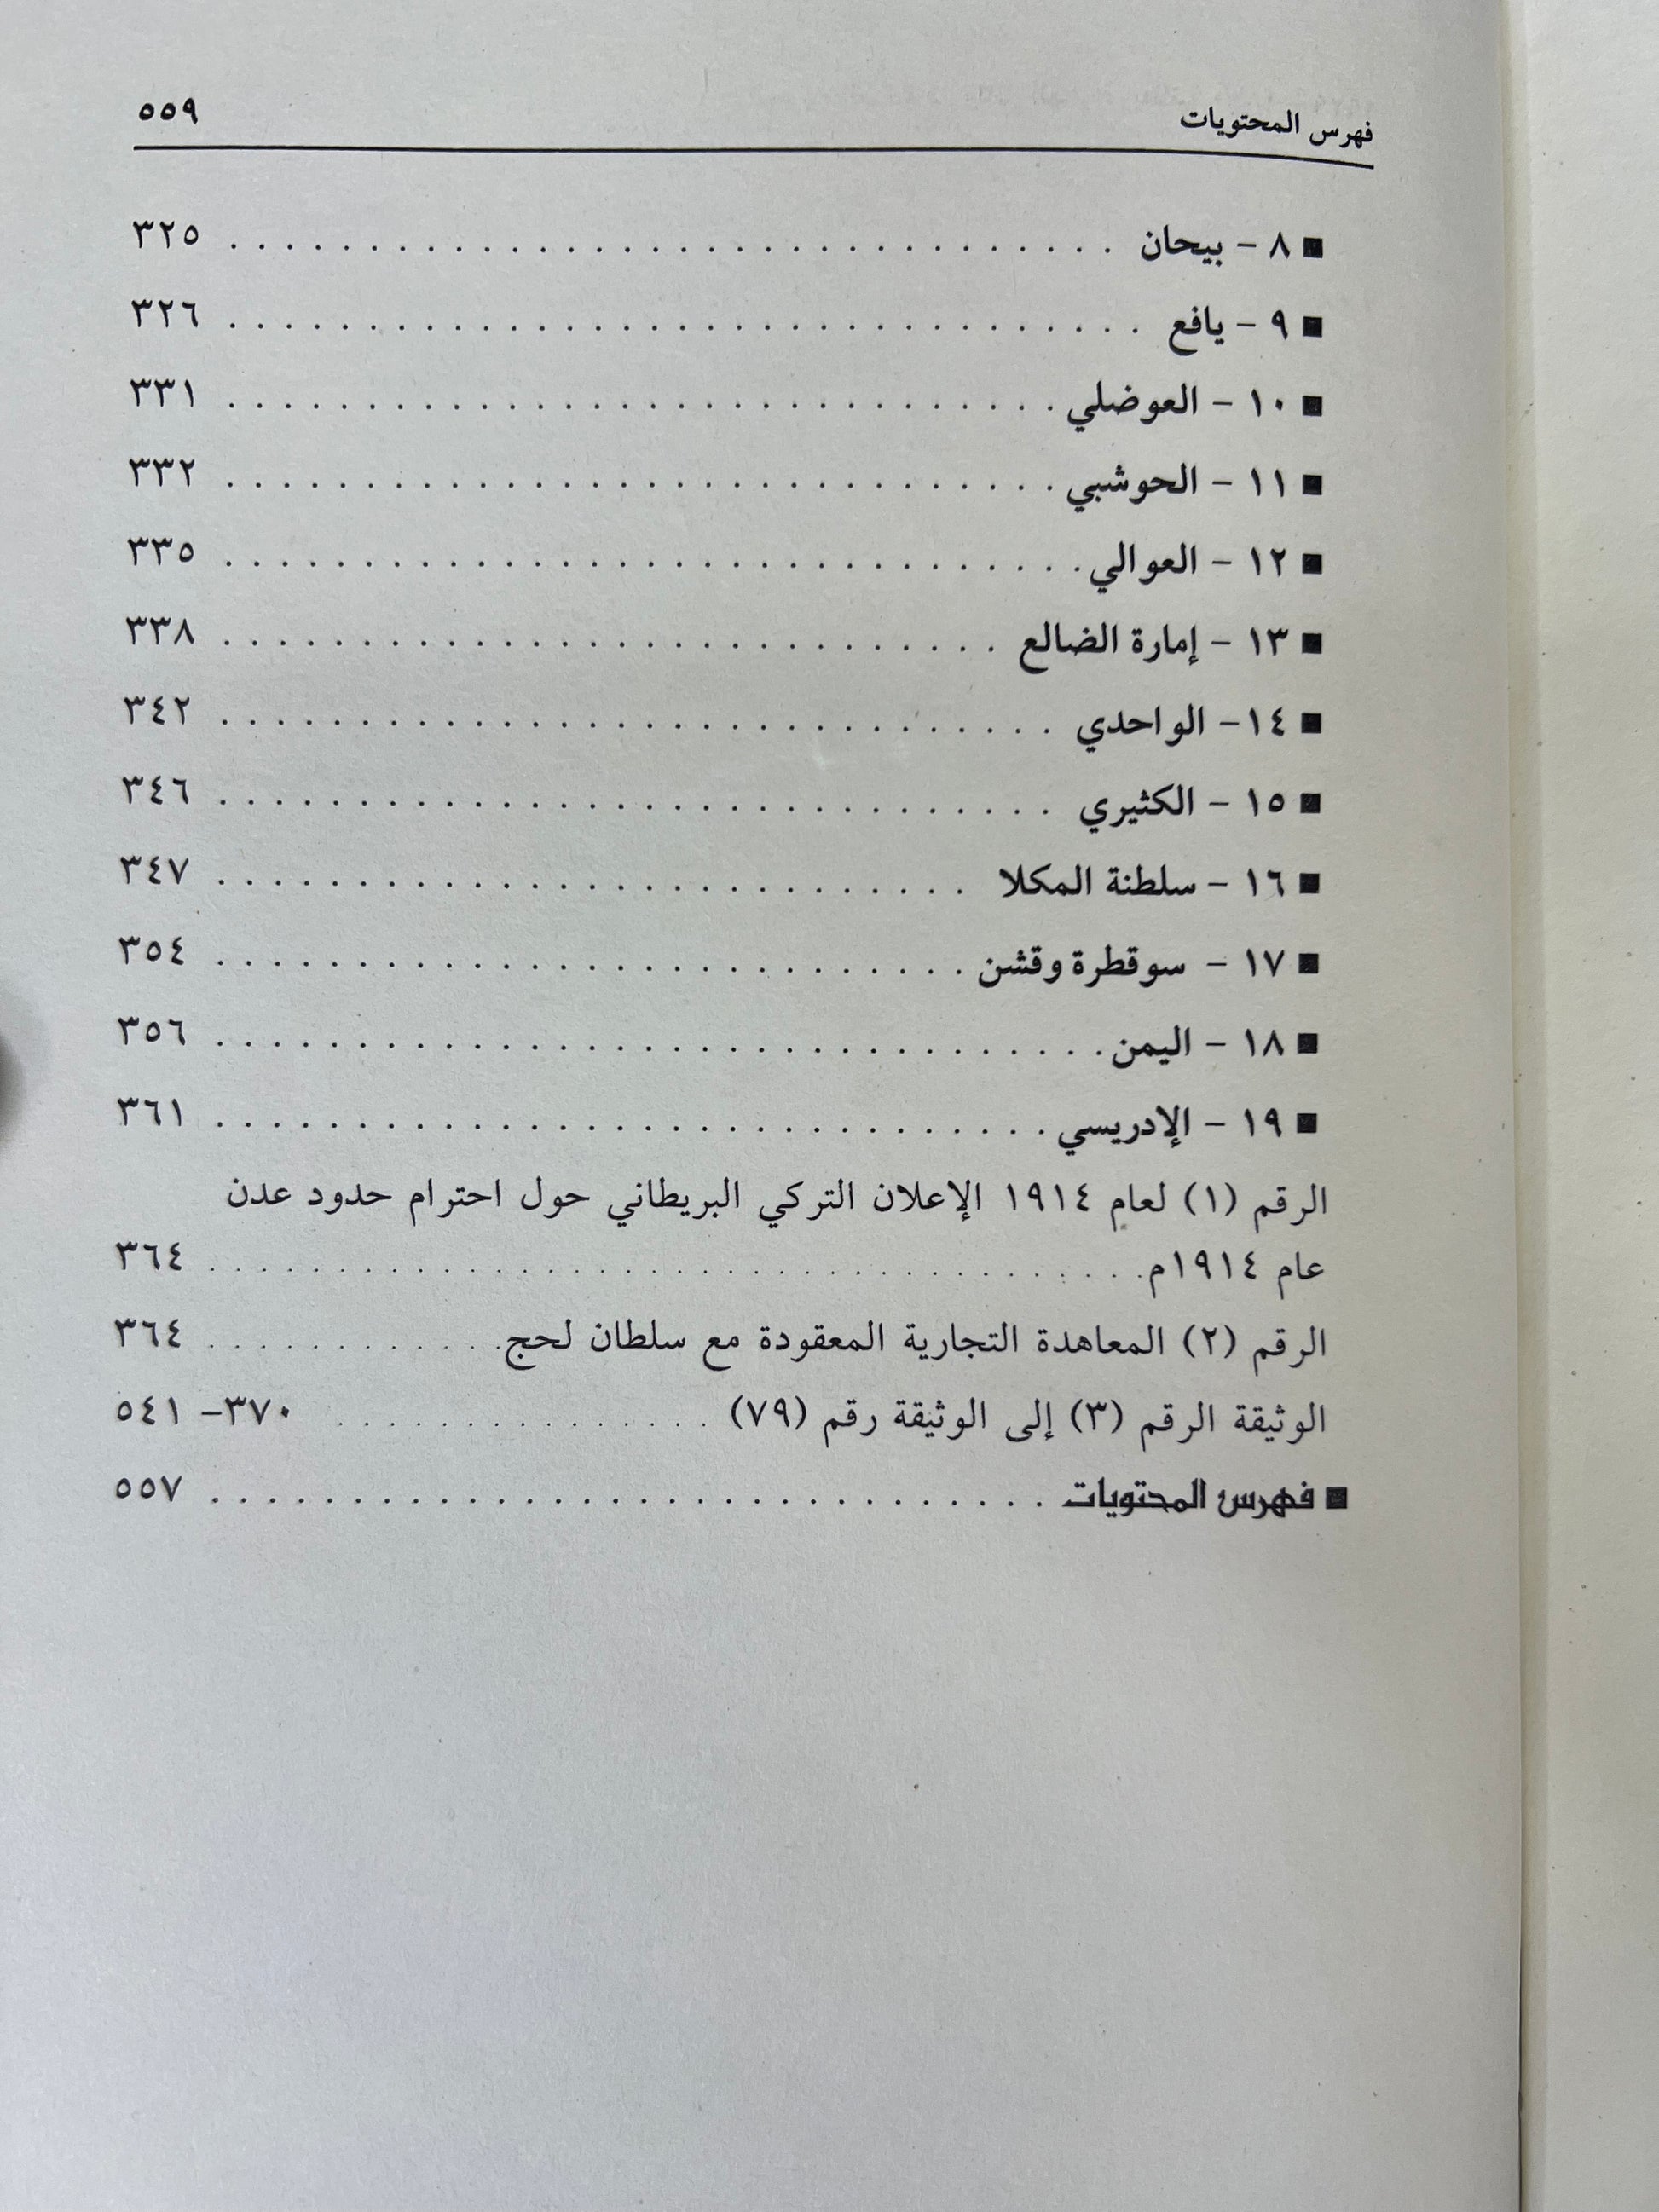 فهرس المحتويات ٥٥٩
■ ٨ - بيحان . . . . . . . . . . . . . . . . . . . . . . . . . . . . . . . . ٣٢٥
■ ٩ - يافع . . . . . . . . . . . . . . . . . . . . . . . . . . . . . . . . . ٣٢٦
■ ١٠ - العوضلي . . . . . . . . . . . . . . . . . . . . . . . . . . . . . . ٣٣١
■ ١١ - الحوشبي . . . . . . . . . . . . . . . . . . . . . . . . . . . . . . ٣٣٢
■ ١٢ - العوالي . . . . . . . . . . . . . . . . . . . . . . . . . . . . . . . ٣٣٥
■ ١٣ - إمارة الضالع . . . . . . . . . . . . . . . . . . . . . . . . . . . . ٣٣٨
■ ١٤- الواحدي . . . . . . . . . . . . . . . . . . . . . . . . . . . . . . ٣٤٢
■ ١٥ - الكثيري . . . . . . . . . . . . . . . . . . . . . . . . . . . . . . ٣٤٦
■ ١٦ - سلطنة المكلا . . . . . . . . . . . . . . . . . . . . . . . . . . . ٣٤٧
■ ١٧ - سوقطرة وقشن . . . . . . . . . . . . . . . . . . . . . . . . . . . ٣٥٤
■ ١٨ - اليمن . . . . . . . . . . . . . . . . . . . . . . . . . . . . . . . . ٣٥٦
■ ١٩ - الإدريسي . . . . . . . . . . . . . . . . . . . . . . . . . . . . . . ٣٦١
الرقم (١) لعام ١٩١٤ الإعلان التركي البريطاني حول احترام حدود عدن
عام ١٩١٤م . . . . . . . . . . . . . . . . . . . . . . . . . . . . . . . . . . . ٣٦٤
الرقم (٢) المعاهدة التجارية المعقودة مع سلطان لحج . . . . . . . . . . . . ٣٦٤
الوثيقة الرقم (٣) إلى الوثيقة رقم (٧٩) . . . . . . . . . . . . . . ٣٧٠- ٥٤١
■ فهرس المحتويات . . . . . . . . . . . . . . . . . . . . . . . . . . . . . . ٥٥٧